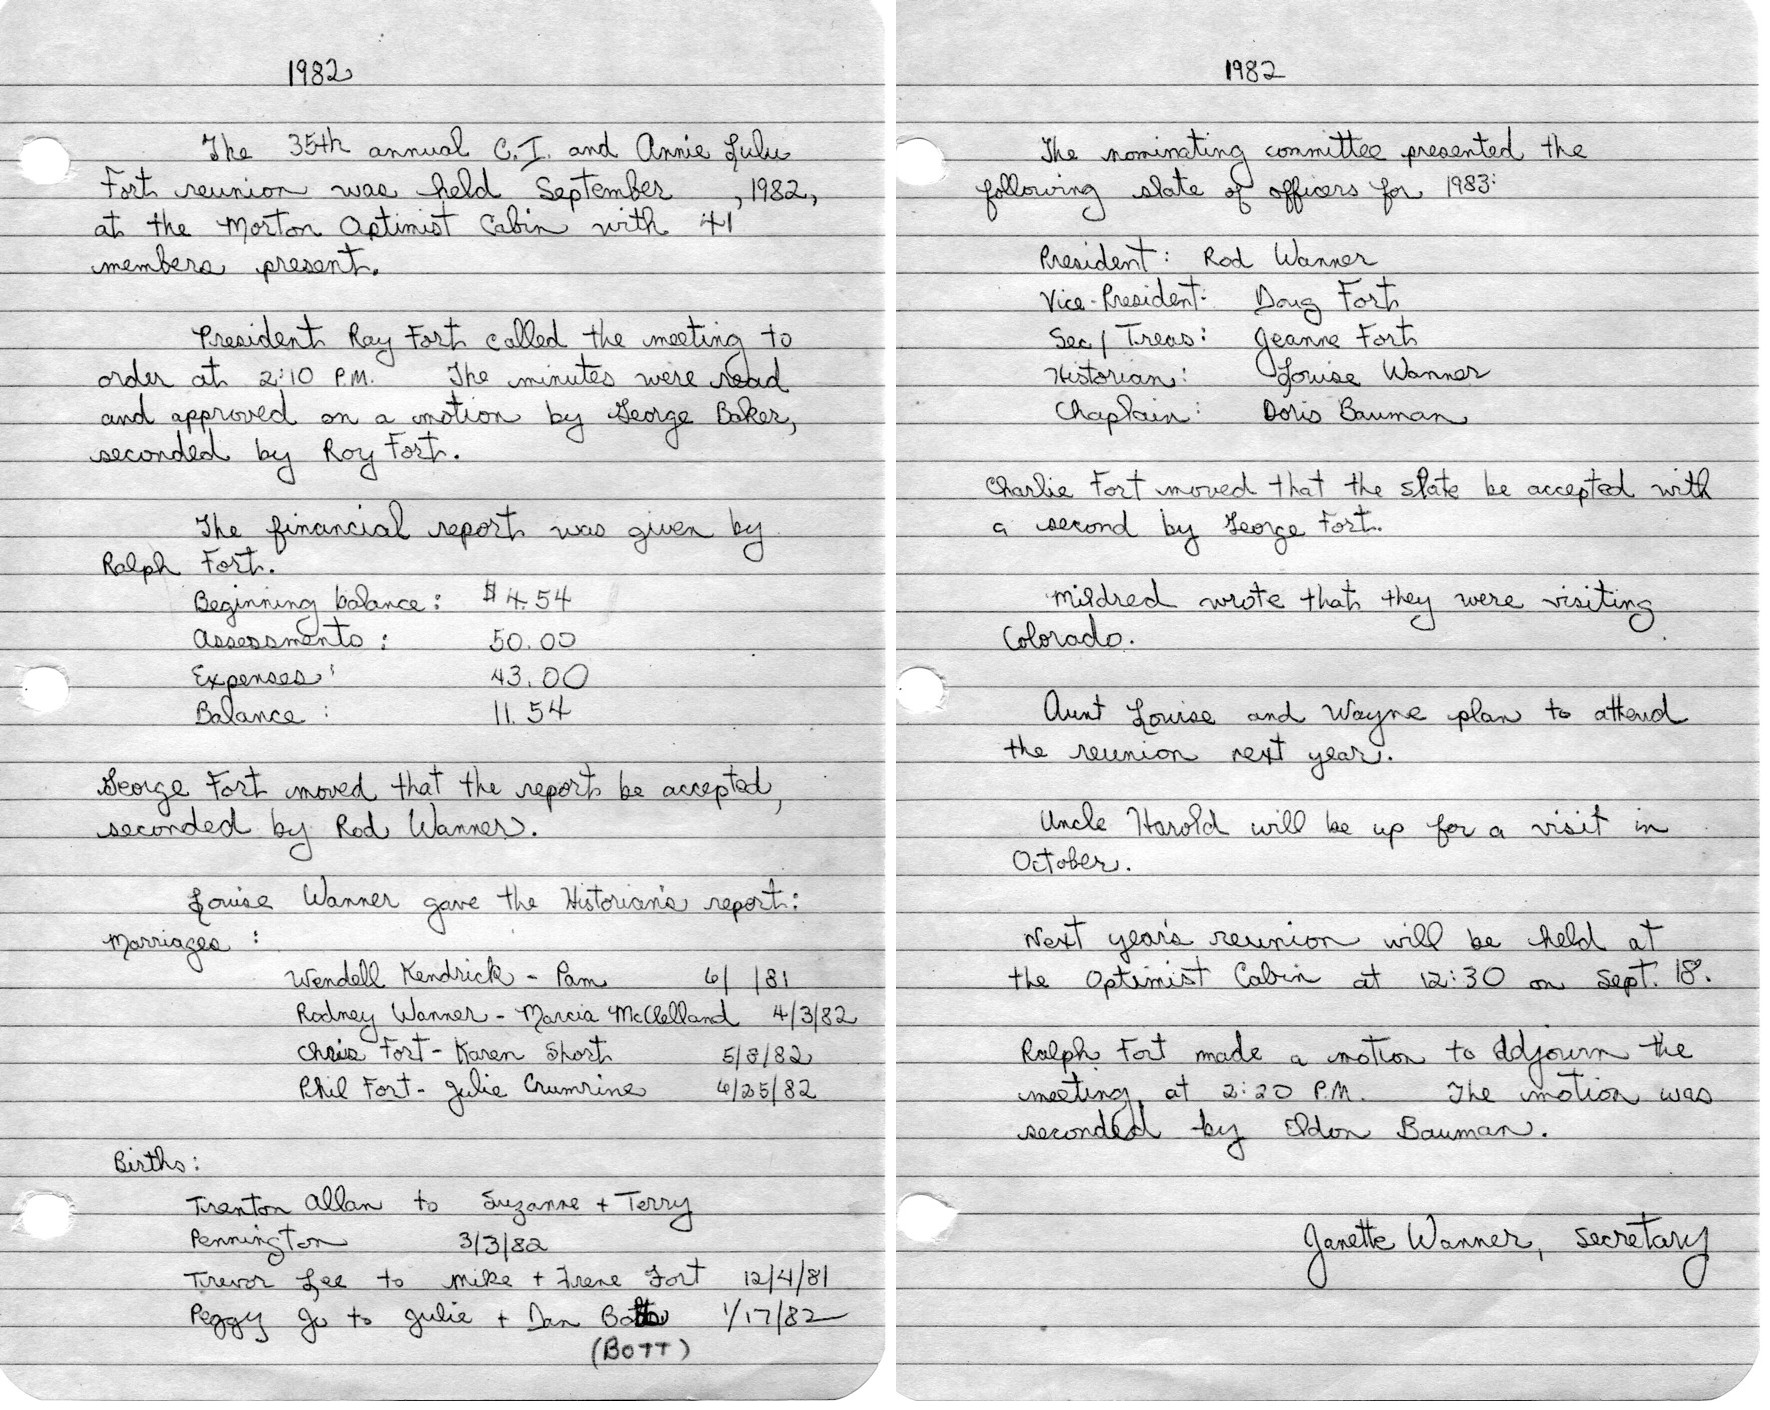 1982
The 35th annual C.I. and Annie Lulu
Fort reunion was held September , 1982,
at the Morton Optimist Cabin with 41
members present.
President Ray Fort called the meeting to
order at 2:10 P.M. The minutes were read
and approved on a motion by George Baker,
seconded by Roy Fort.
The financial report was given by
Ralph Fort.
Beginning balance: $4.54
Assessments: 50.00
Expenses: 43.00
Balance: 11.54
George Fort moved that the report be accepted,
seconded by Rod Wanner.
Louise Wanner gave the Historian's report:
Marriages:
Wendell Kendrick - Pam 6/ /81
Rodney Wanner - Marcia McClelland 4/3/82
Chris Fort - Karen Short 5/8/82
Phil Fort - Julie Crumrine 6/25/82
Births:
Trenton Allan to Suzanne + Terry
Pennington 3/3/82
Trevor Lee to Mike + Irene Fort 12/4/81
Peggy Jo to Julie + Dan 1/17/82
(BOTT)
1982
The nominating committee presented the
following slate of officers for 1983:
President: Rod Wanner
Vice-President: Doug Fort
Sec/Treas: Jeanne Fort
Historian: Louise Wanner
Chaplain: Doris Bauman
Charlie Fort moved that the slate be accepted with
a second by George Fort.
Mildred wrote that they were visiting
Colorado.
Aunt Louise and Wayne plan to attend
the reunion next year.
Uncle Harold will be up for a visit in
October.
Next year's reunion will be held at
the Optimist Cabin at 12:30 on Sept. 18.
Ralph Fort made a motion to adjourn the
meeting at 2:20 P.M. The motion was
seconded by Eldon Bauman.
Janette Wanner, secretary